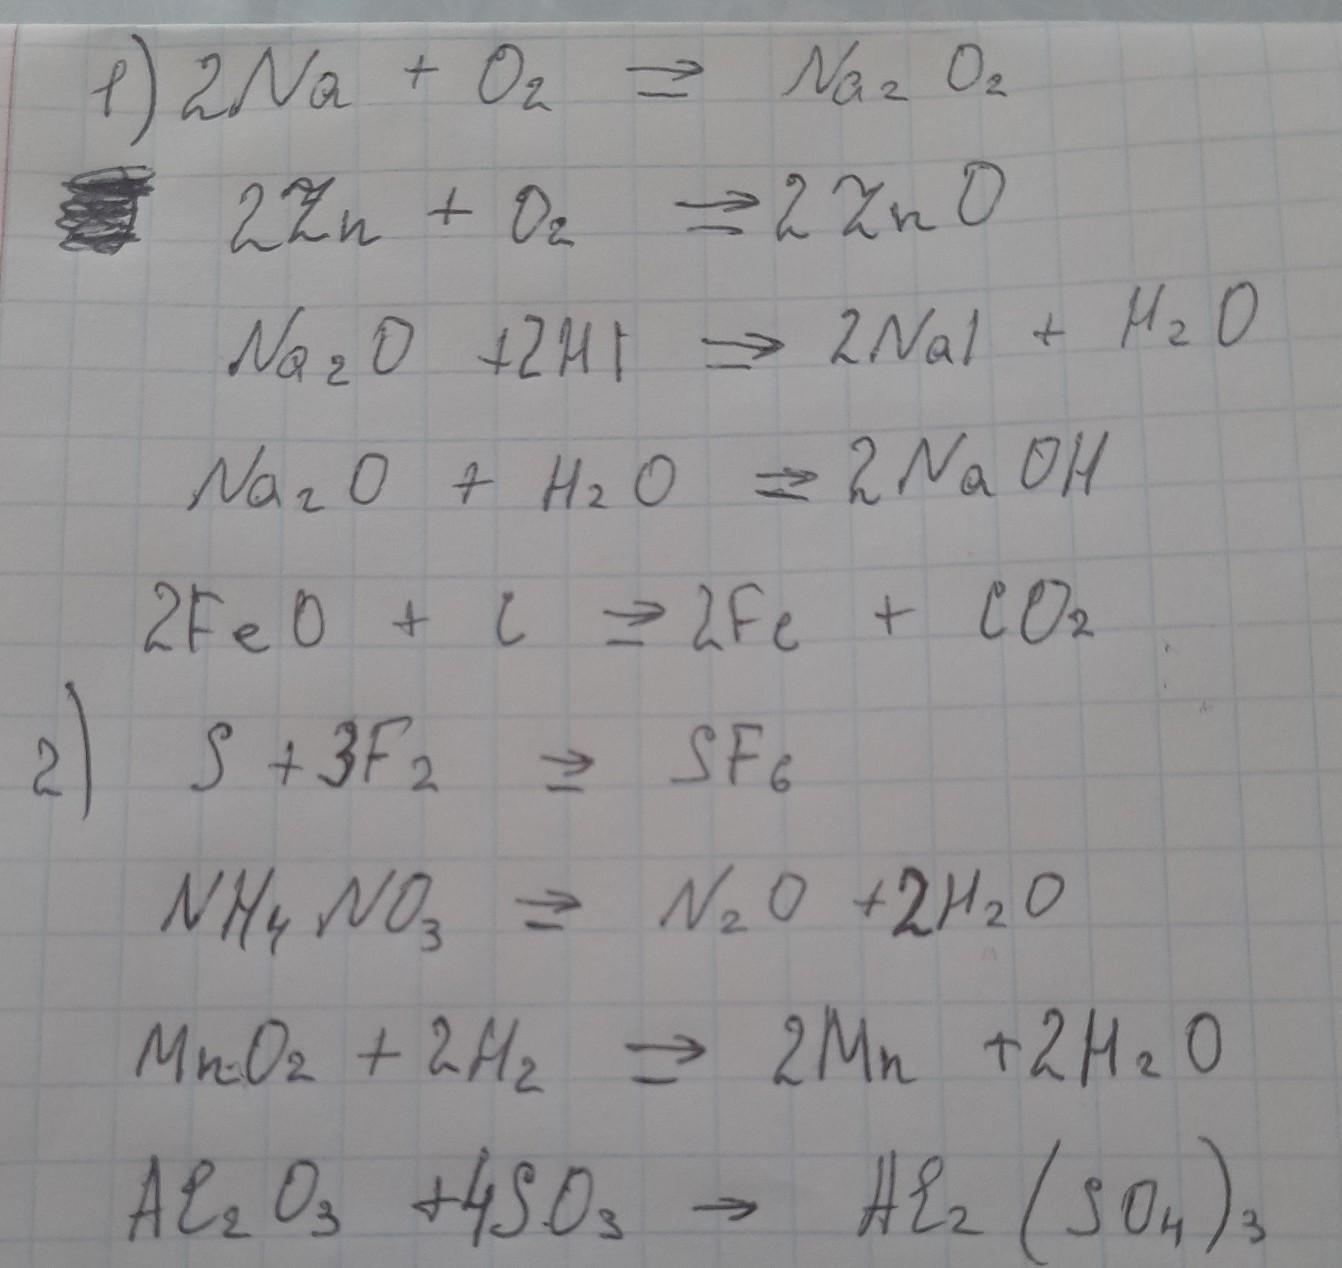 1) 2Na + O₂ ⇒ Na₂O₂
2Zn + O₂ ⇒ 2ZnO
Na₂O + 2HI ⇒ 2NaI + H₂O
Na₂O + H₂O ⇒ 2NaOH
2FeO + C ⇒ 2Fe + CO₂
2) S + 3F₂ ⇒ SF₆
NH₄NO₃ ⇒ N₂O + 2H₂O
MnO₂ + 2H₂ ⇒ 2Mn + 2H₂O
Al₂O₃ + 4SO₃ → Al₂(SO₄)₃